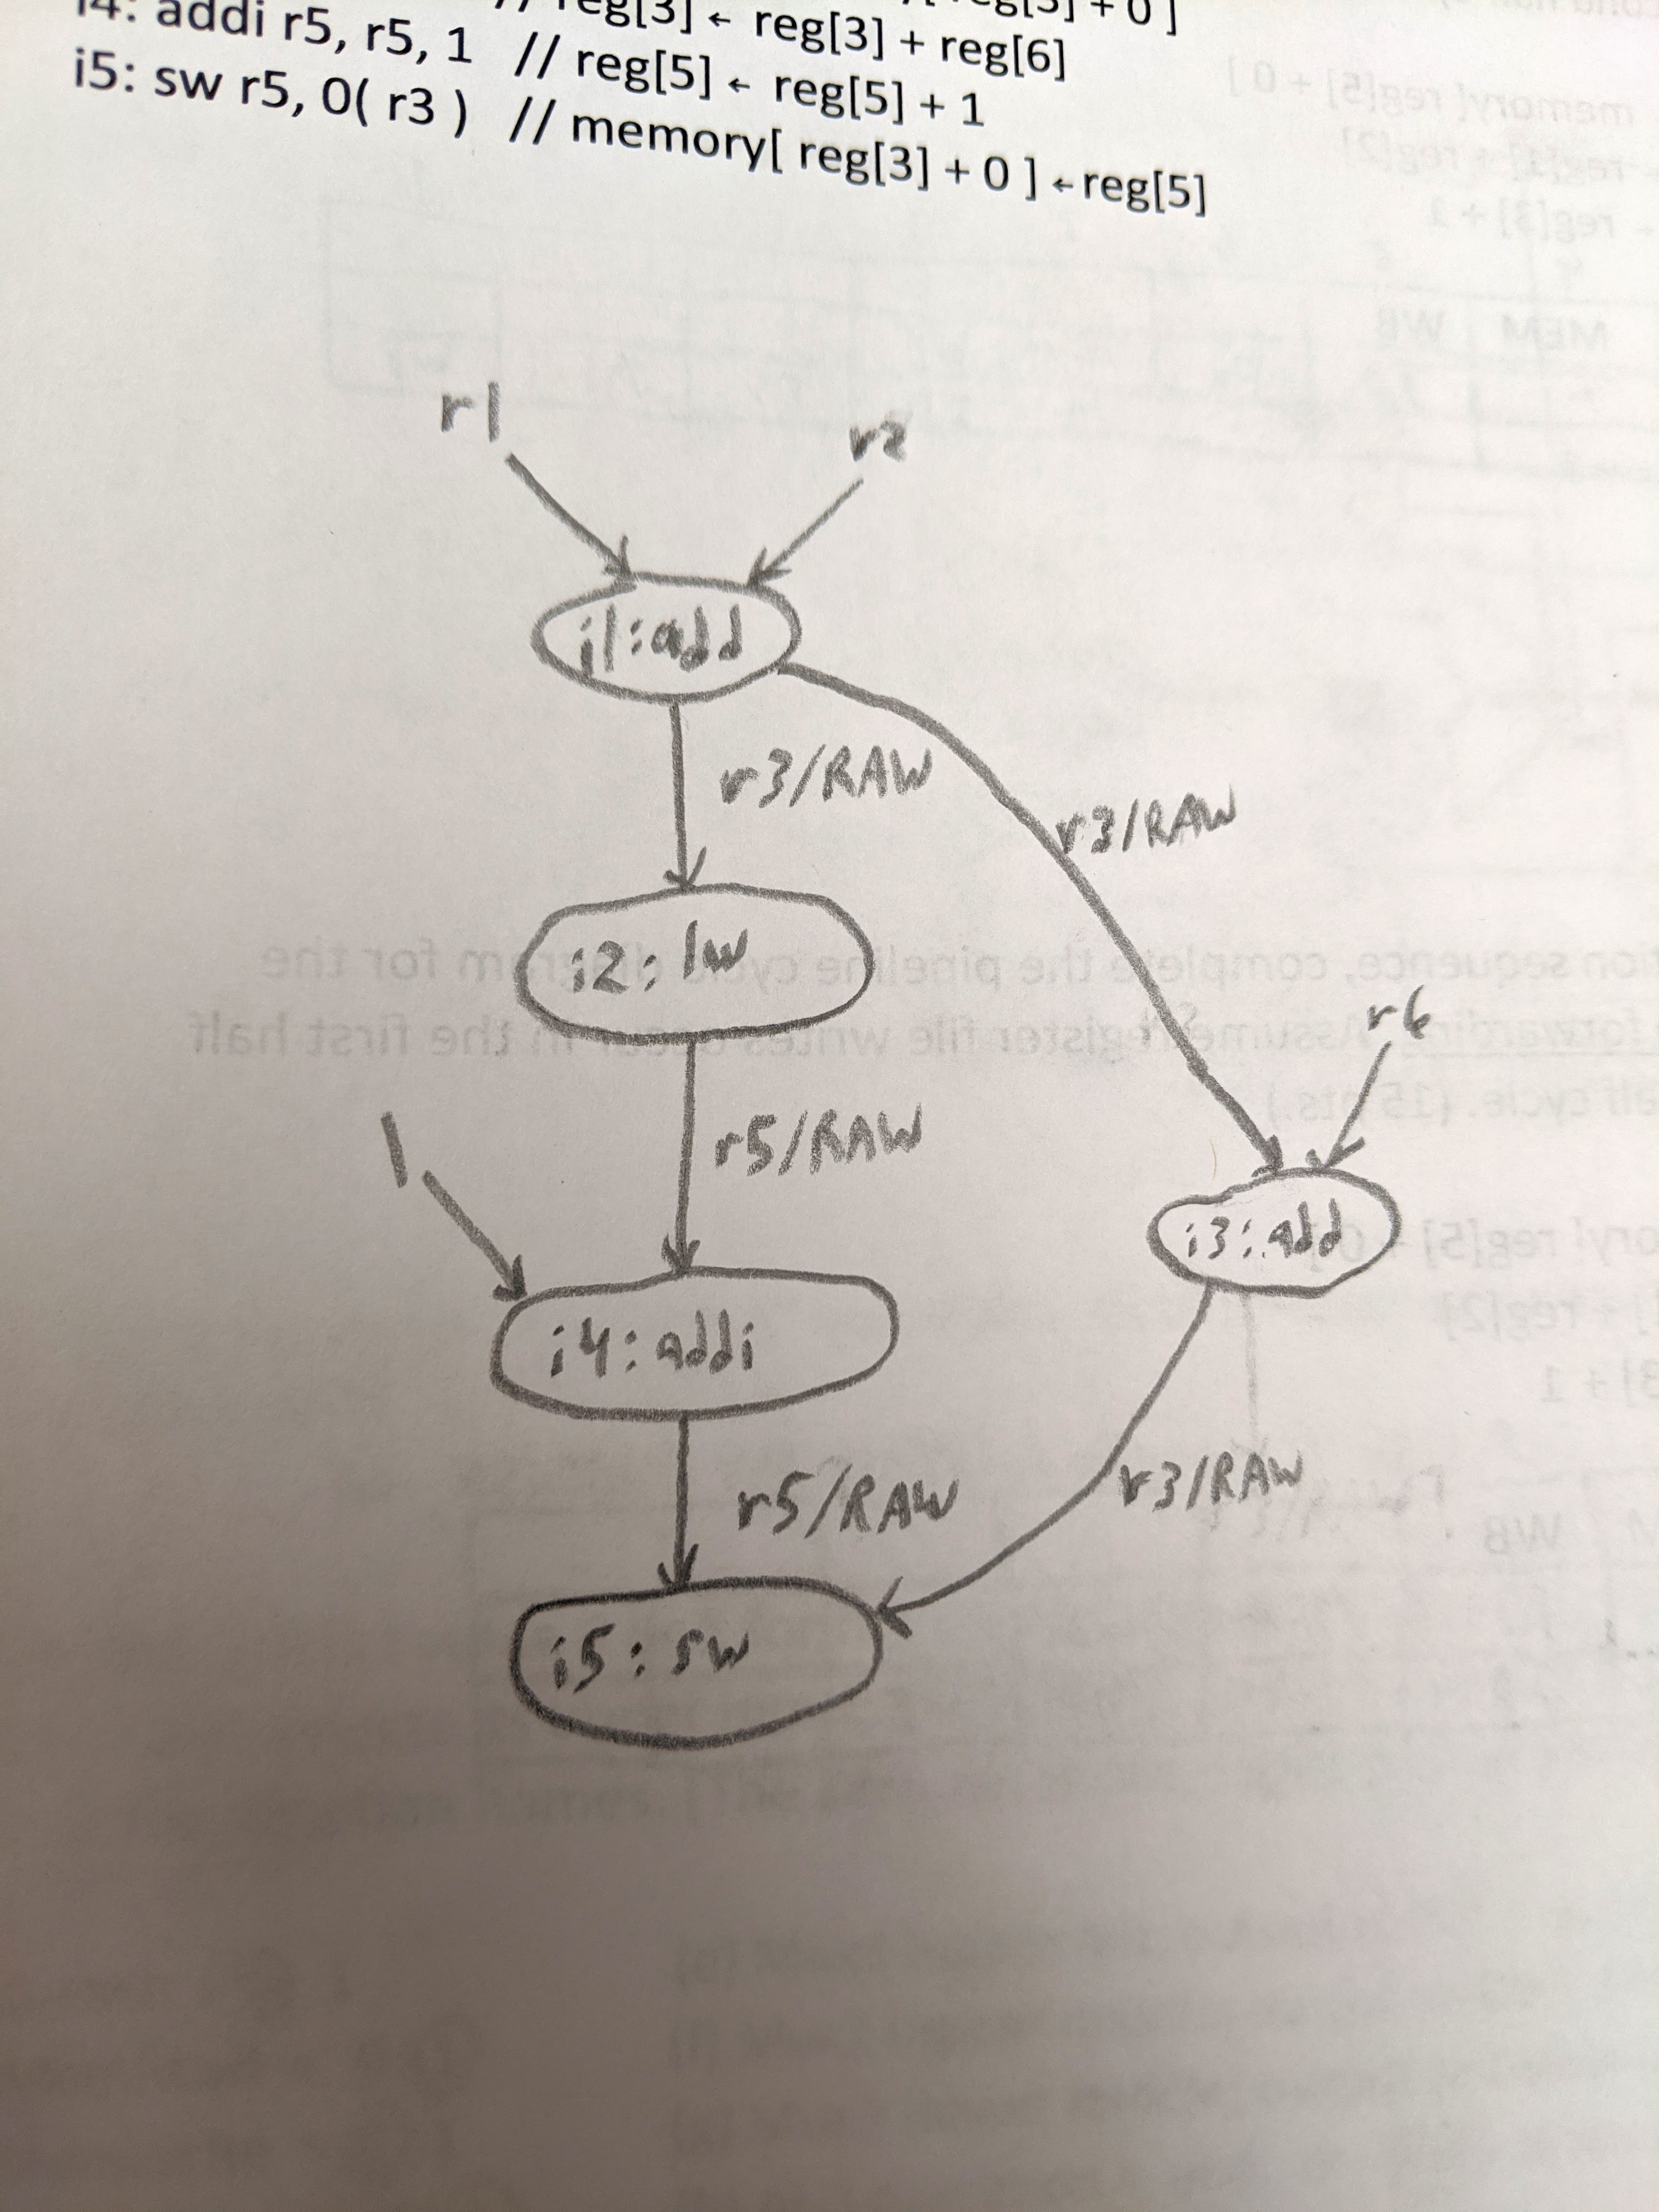 // reg[3] ← reg[3] + reg[6]
i4: addi r5, r5, 1 // reg[5] ← reg[5] + 1
i5: sw r5, 0( r3 ) // memory[ reg[3] + 0 ] ← reg[5]
r1
r2
i1: add
r3/RAW
r3/RAW
i2: lw
r6
r5/RAW
1
i3: add
i4: addi
r3/RAW
r5/RAW
i5: sw